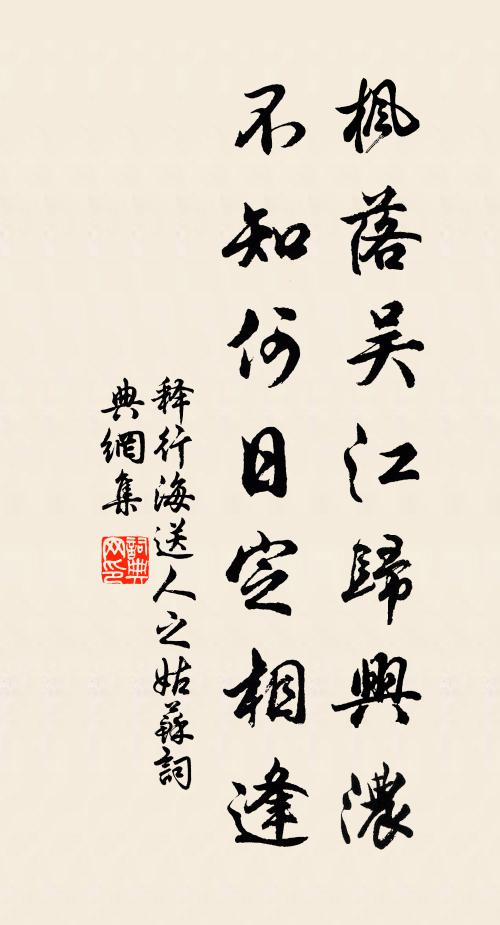 枫落吴江歸興濃
不知何日定相逢
释行海送人之姑蘇詞
典網集
詞典
网印